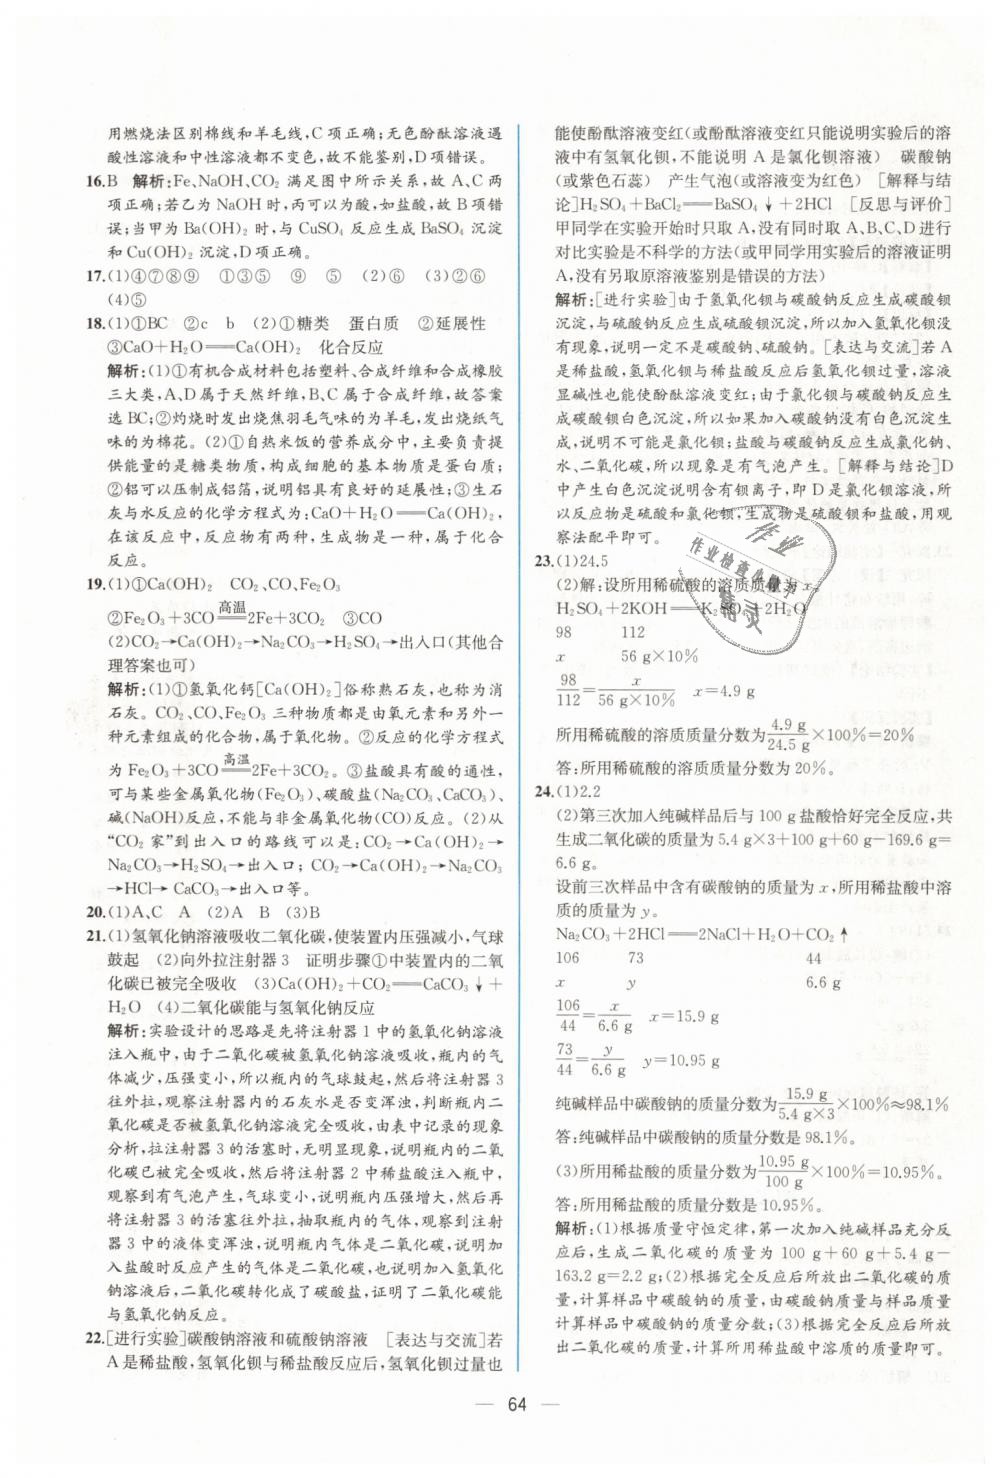 用燃烧法区别棉线和羊毛线,C项正确;无色酚酞溶液遇
酸性溶液和中性溶液都不变色,故不能鉴别,D项错误。
16.B 解析:Fe、NaOH、CO₂ 满足图中所示关系,故 A、C 两
项正确;若乙为 NaOH 时,丙可以为酸,如盐酸,故 B 项错
误;当甲为 Ba(OH)₂ 时,与 CuSO₄ 反应生成 BaSO₄ 沉淀
和 Cu(OH)₂ 沉淀,D项正确。
17.(1)④⑦⑧⑨ ①③⑤ ⑨ ⑤ (2)⑥ (3)②⑥
(4)⑤
18.(1)①BC ②c b (2)①糖类 蛋白质 ②延展性
③CaO+H₂O══Ca(OH)₂ 化合反应
解析:(1)①有机合成材料包括塑料、合成纤维和合成橡胶
三大类,A、D属于天然纤维,B、C属于合成纤维,故答案
选 BC;②灼烧时发出烧焦羽毛气味的为羊毛,发出烧纸气
味的为棉花。(2)①自热米饭的营养成分中,主要负责提
供能量的是糖类物质,构成细胞的基本物质是蛋白质;
②铝可以压制成铝箔,说明铝具有良好的延展性;③生石
灰与水反应的化学方程式为:CaO+H₂O══Ca(OH)₂,
在该反应中,反应物有两种,生成物是一种,属于化合
反应。
19.(1)①Ca(OH)₂ CO₂、CO、Fe₂O₃
②Fe₂O₃+3CO══高温══2Fe+3CO₂ ③CO
(2)CO₂→Ca(OH)₂→Na₂CO₃→H₂SO₄→出入口(其他合
理答案也可)
解析:(1)①氢氧化钙[Ca(OH)₂]俗称熟石灰,也称为消
石灰。CO₂、CO、Fe₂O₃ 三种物质都是由氧元素和另外一
种元素组成的化合物,属于氧化物。②反应的化学方程式
为 Fe₂O₃+3CO══高温══2Fe+3CO₂。③盐酸具有酸的通性,
可与某些金属氧化物(Fe₂O₃)、碳酸盐(Na₂CO₃、CaCO₃)、
碱(NaOH)反应,不能与非金属氧化物(CO)反应。(2)从
“CO₂ 家”到出入口的路线可以是:CO₂→Ca(OH)₂→
Na₂CO₃→H₂SO₄→出入口;CO₂→Ca(OH)₂→Na₂CO₃
→HCl→CaCO₃→出入口等。
20.(1)A、C A (2)A B (3)B
21.(1)氢氧化钠溶液吸收二氧化碳,使装置内压强减小,气球
鼓起 (2)向外拉注射器3 证明步骤①中装置内的二氧
化碳已被完全吸收 (3)Ca(OH)₂+CO₂══CaCO₃↓+
H₂O (4)二氧化碳能与氢氧化钠反应
解析:实验设计的思路是先将注射器1中的氢氧化钠溶液
注入瓶中,由于二氧化碳被氢氧化钠溶液吸收,瓶内的气
体减少,压强变小,所以瓶内的气球鼓起,然后将注射器3
往外拉,观察注射器内的石灰水是否变浑浊,判断瓶内二
氧化碳是否被氢氧化钠溶液完全吸收,由表中记录的现象
分析,拉注射器3的活塞时,无明显现象,说明瓶内的二氧
化碳已被完全吸收,然后将注射器2中稀盐酸注入瓶中,
观察到有气泡产生,气球变小,说明瓶内压强增大,然后再
将注射器3的活塞往外拉,抽取瓶内的气体,观察到注射
器3中的液体变浑浊,说明瓶内气体是二氧化碳,说明加
入盐酸时反应产生的气体是二氧化碳,也说明加入氢氧化
钠溶液后,二氧化碳转化成了碳酸盐,证明了二氧化碳能
与氢氧化钠反应。
22.[进行实验]碳酸钠溶液和硫酸钠溶液 [表达与交流]若
A是稀盐酸,氢氧化钡与稀盐酸反应后,氢氧化钡过量也
能使酚酞溶液变红(或酚酞溶液变红只能说明实验后的溶
液中有氢氧化钡,不能说明A是氯化钡溶液) 碳酸钠
(或紫色石蕊) 产生气泡(或溶液变为红色) [解释与结
论]H₂SO₄+BaCl₂══BaSO₄↓+2HCl [反思与评价]
甲同学在实验开始时只取A,没有同时取A、B、C、D进行
对比实验是不科学的方法(或甲同学用实验后的溶液证明
A,没有另取原溶液鉴别是错误的方法)
解析:[进行实验]由于氢氧化钡与碳酸钠反应生成碳酸钡
沉淀,与硫酸钠反应生成硫酸钡沉淀,所以加入氢氧化钡没
有现象,说明一定不是碳酸钠、硫酸钠。[表达与交流]若A
是稀盐酸,氢氧化钡与稀盐酸反应后氢氧化钡过量,溶液
显碱性也能使酚酞溶液变红;由于氯化钡与碳酸钠反应生
成碳酸钡白色沉淀,所以如果加入碳酸钠没有白色沉淀生
成,说明不可能是氯化钡;盐酸与碳酸钠反应生成氯化钠、
水、二氧化碳,所以现象是有气泡产生。[解释与结论]D
中产生白色沉淀说明含有钡离子,即D是氯化钡溶液,所
以反应物是硫酸和氯化钡,生成物是硫酸钡和盐酸,用观
察法配平即可。
23.(1)24.5
(2)解:设所用稀硫酸的溶质质量为x。
H₂SO₄+2KOH══K₂SO₄+2H₂O
98 112
x 56 g×10%
98/112=x/(56 g×10%) x=4.9 g
所用稀硫酸的溶质质量分数为4.9 g/24.5 g×100%=20%
答:所用稀硫酸的溶质质量分数为20%。
24.(1)2.2
(2)第三次加入纯碱样品后与100 g盐酸恰好完全反应,共
生成二氧化碳的质量为5.4 g×3+100 g+60 g−169.6 g=
6.6 g。
设前三次样品中含有碳酸钠的质量为x,所用稀盐酸中溶
质的质量为y。
Na₂CO₃+2HCl══2NaCl+H₂O+CO₂↑
106 73 44
x y 6.6 g
106/44=x/6.6 g x=15.9 g
73/44=y/6.6 g y=10.95 g
纯碱样品中碳酸钠的质量分数为15.9 g/(5.4 g×3)×100%≈98.1%
答:纯碱样品中碳酸钠的质量分数是98.1%。
(3)所用稀盐酸的质量分数为10.95 g/100 g×100%=10.95%。
答:所用稀盐酸的质量分数是10.95%。
解析:(1)根据质量守恒定律,第一次加入纯碱样品充分反
应后,生成二氧化碳的质量为100 g+60 g+5.4 g−
163.2 g=2.2 g;(2)根据完全反应后所放出二氧化碳的质
量,计算样品中碳酸钠的质量,由碳酸钠质量与样品质量
计算样品中碳酸钠的质量分数;(3)根据完全反应后所放
出二氧化碳的质量,计算所用稀盐酸中溶质的质量即可。
— 64 —
作业
作业检查小助手
精灵